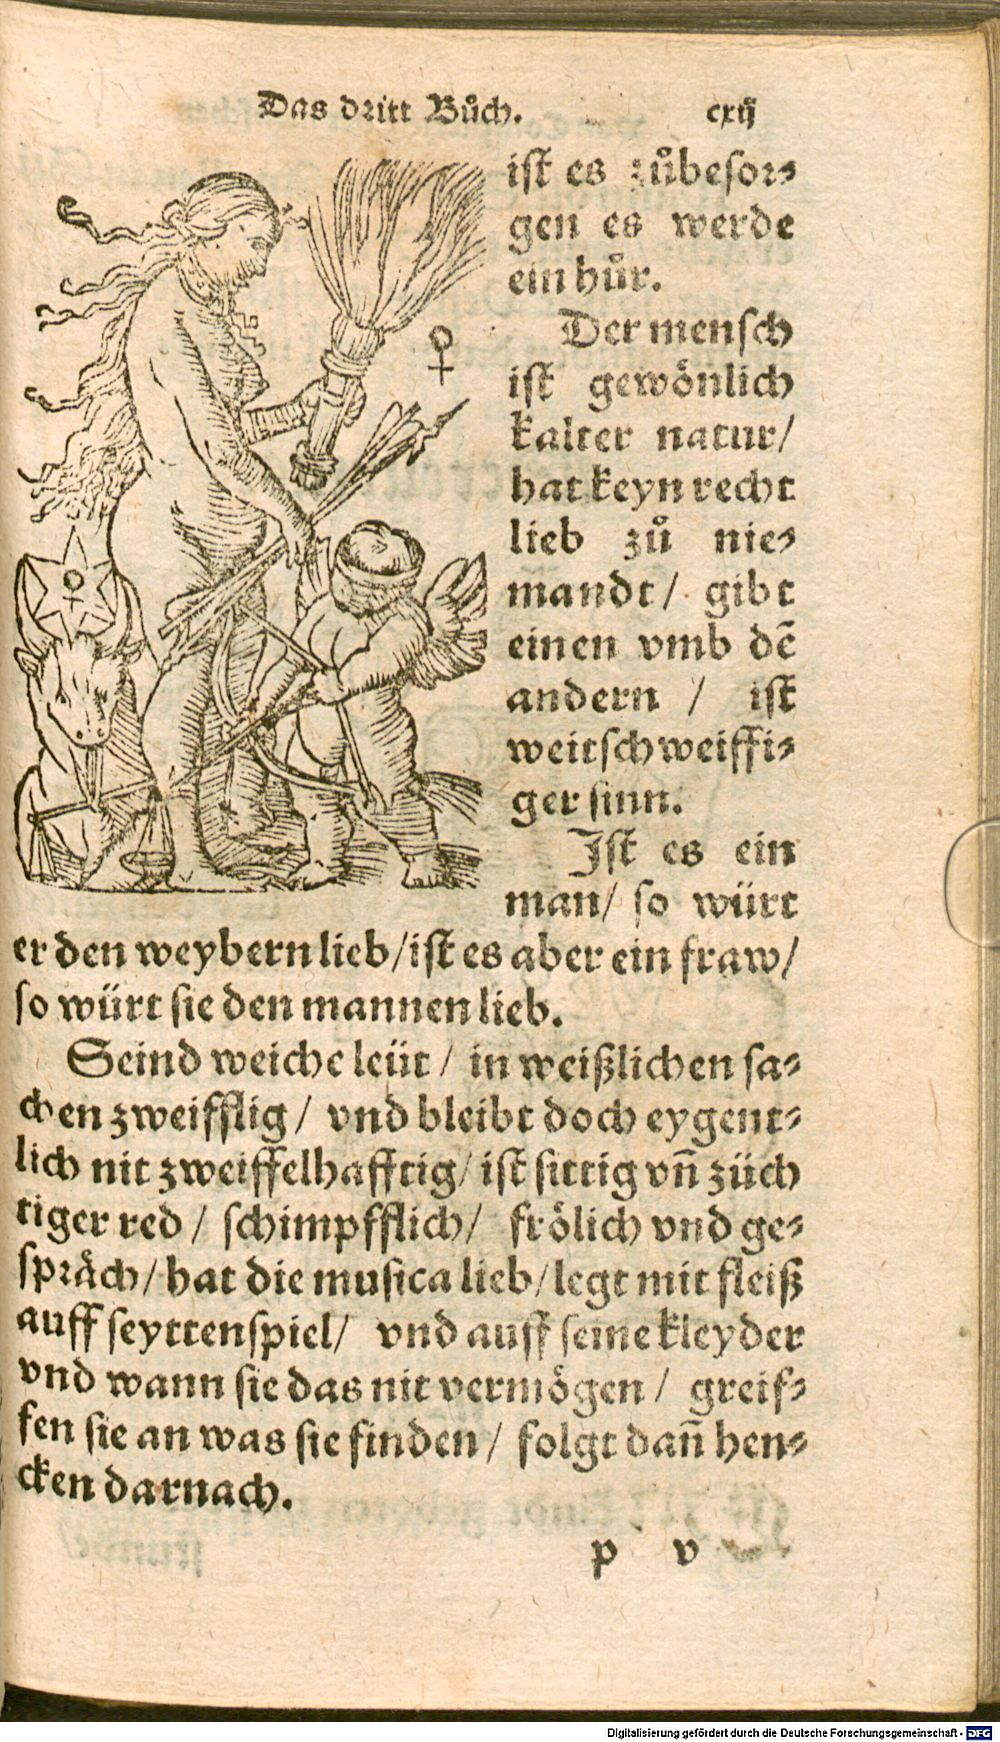 Das dritt Bůch. cxij
ist es zůbesor⸗
gen es werde
ein hůr.
Der mensch
ist gewönlich
kalter natur/
hat keyn recht
lieb zů nie⸗
mandt/ gibt
einen vmb dē
andern / ist
weitschweiffi⸗
ger sinn.
Ist es ein
man/ so würt
er den weybern lieb/ist es aber ein fraw/
so würt sie den mannen lieb.
Seind weiche leüt / in weißlichen sa⸗
chen zweifflig / vnd bleibt doch eygent⸗
lich nit zweiffelhafftig/ ist sittig vñ züch
tiger red / schimpfflich/ frölich vnd ge⸗
spräch/ hat die musica lieb/ legt mit fleiß
auff seyttenspiel/ vnd auff seine kleyder
vnd wann sie das nit vermögen / greif⸗
fen sie an was sie finden / folgt dañ hen⸗
cken darnach.
p v
Digitalisierung gefördert durch die Deutsche Forschungsgemeinschaft - DFG